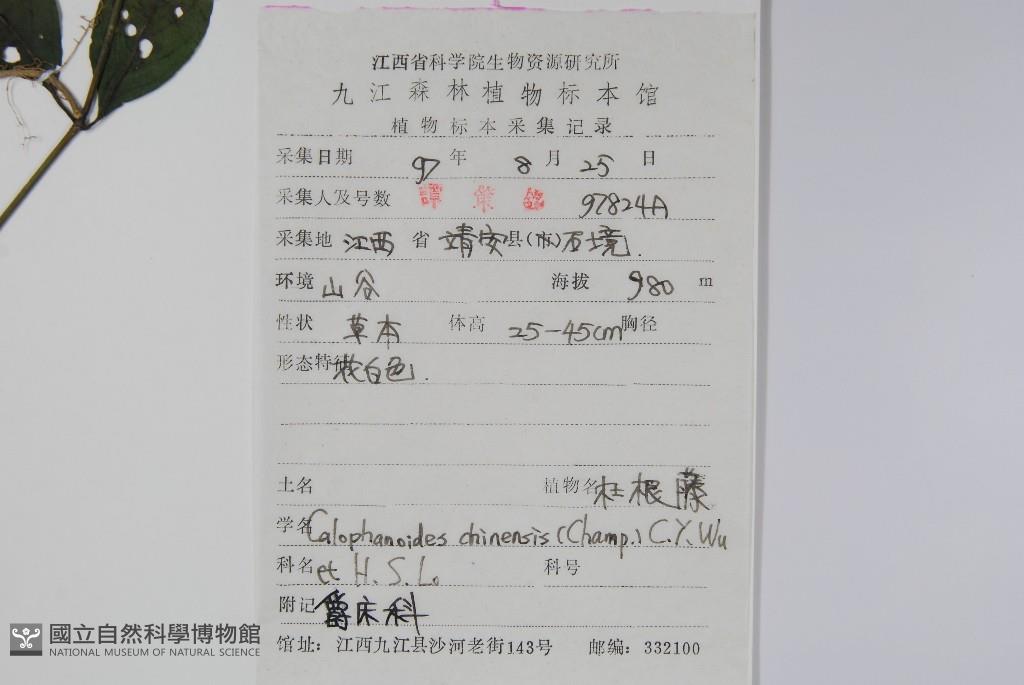 江西省科学院生物资源研究所
九江森林植物标本馆
植物标本采集记录
采集日期 97 年 8 月 25 日
采集人及号数 譚策銘 97824A
采集地 江西 省 靖安 县(市) 石境.
环境 山谷 海拔 980 m
性状 草本 体高 25-45cm 胸径
形态特征 花白色.
土名 植物名 杜根藤
学名 Calophanoides chinensis (Champ.) C.Y. Wu
科名 et H. S. Lo 科号
附记 爵床科
馆址: 江西九江县沙河老街143号 邮编: 332100
國立自然科學博物館
NATIONAL MUSEUM OF NATURAL SCIENCE